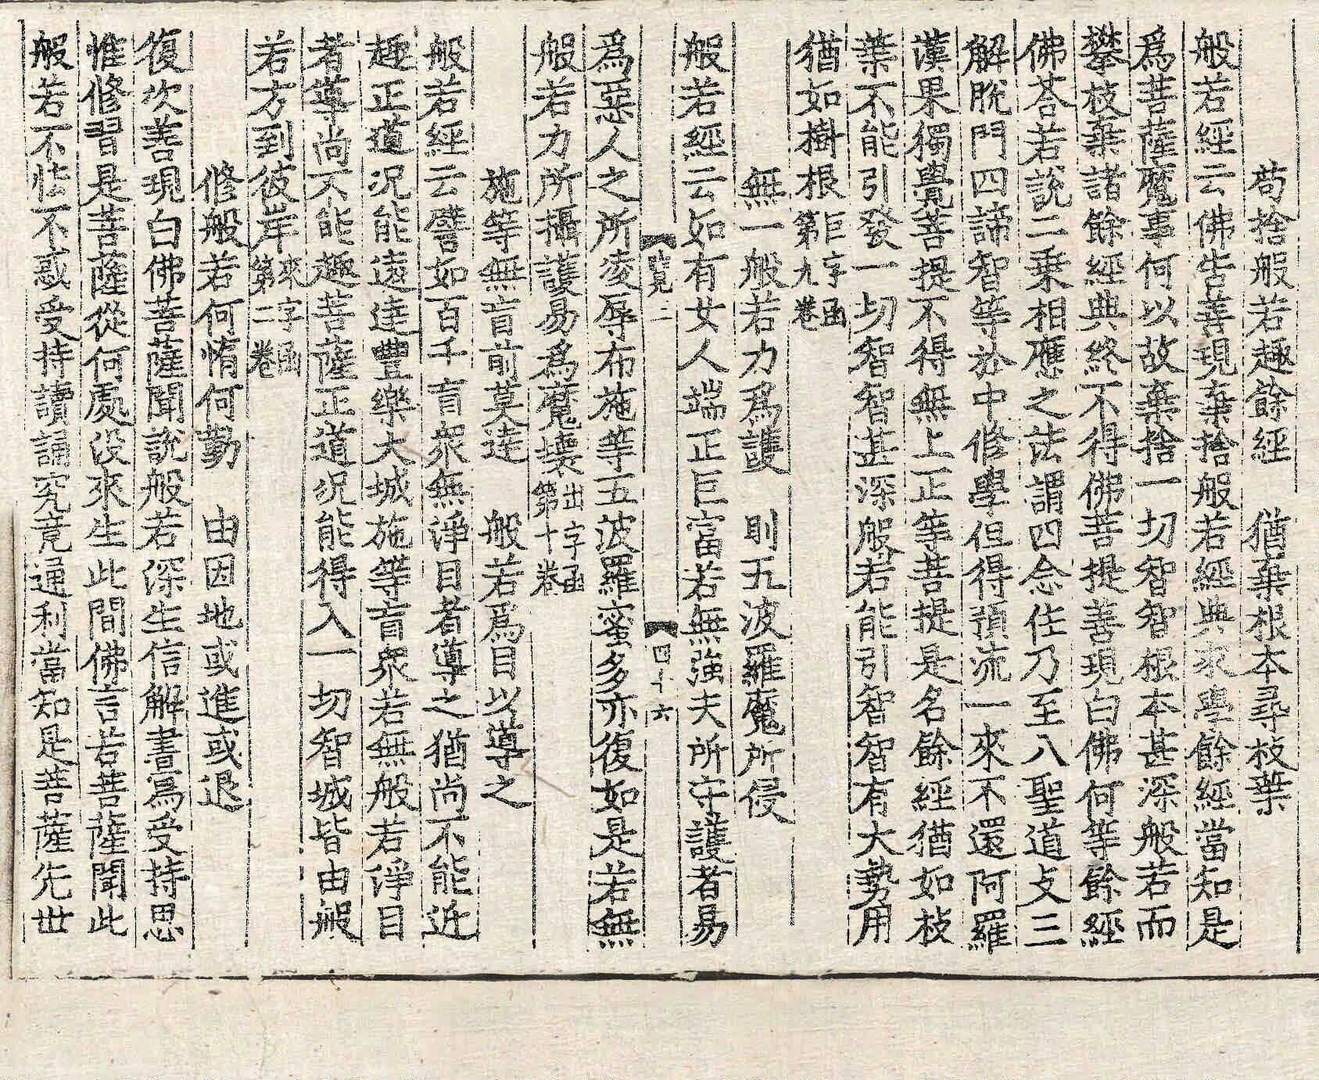 苟捨般若趣餘經　猶棄根本尋枝葉
般若經云佛告善現棄捨般若經典求學餘經當知是
爲菩薩魔事何以故棄捨一切智智根本甚深般若而
攀枝葉諸餘經典終不得佛菩提善現白佛何等餘經
佛荅若說二乗相應之法謂四念住乃至八聖道支三
解脫門四諦智等於中修學但得預流一來不還阿羅
漢果獨覺菩提不得無上正等菩提是名餘經猶如枝
葉不能引發一切智智甚深般若能引智智有大勢用
猶如樹根巨字函第九卷
無一般若力爲護　則五波羅魔所侵
般若經云如有女人端正巨富若無強夫所守護者易
二　四十六
爲惡人之所凌辱布施等五波羅蜜多亦復如是若無
般若力所攝護易爲魔壞出字函第十卷
施等無盲前莫達　般若爲目以導之
般若經云譬如百千盲衆無淨目者導之猶尚不能近
趣正道況能遠達豐樂大城施等盲衆若無般若淨目
者導尚不能趣菩薩正道況能得入一切智城皆由般
若方到彼岸來字函第二卷
修般若何惰何勤　由因地或進或退
復次善現白佛菩薩聞說般若深生信解書寫受持思
惟修習是菩薩從何處没來生此間佛言若菩薩聞此
般若不怯不惑受持讀誦究竟通利當知是菩薩先世